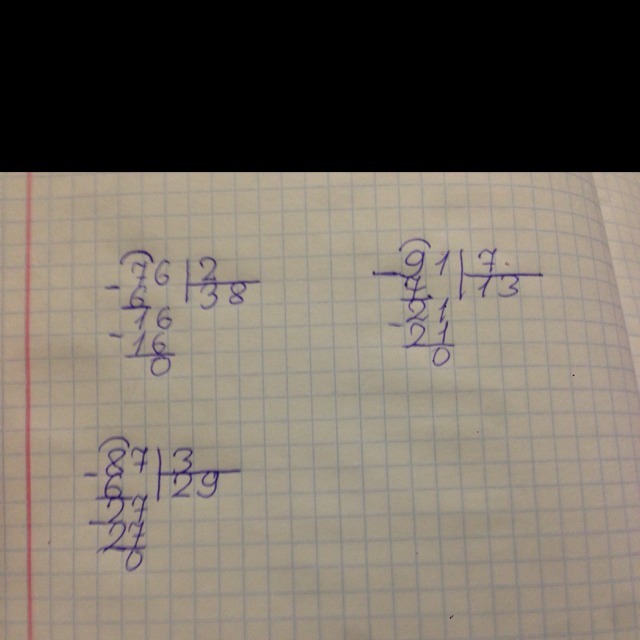 76 | 2
- 6 | 38
16
- 16
0
91 | 7
- 7 | 13
21
- 21
0
87 | 3
- 6 | 29
27
- 27
0